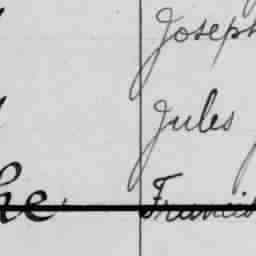 Joseph
Jules
he Francis